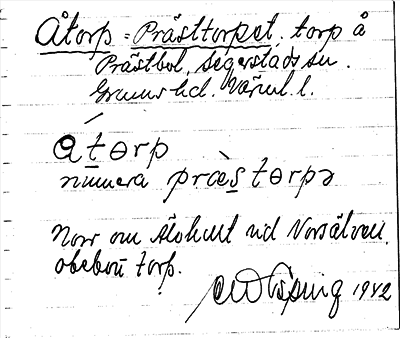 Åtorp = Prästtorpet. torp å
Prästbol, Segerstads sn.
Grums hd. Värml. l.
åtorp
numera præstorpə
Norr om Älohult vid Norsälven.
obebott torp.
1942